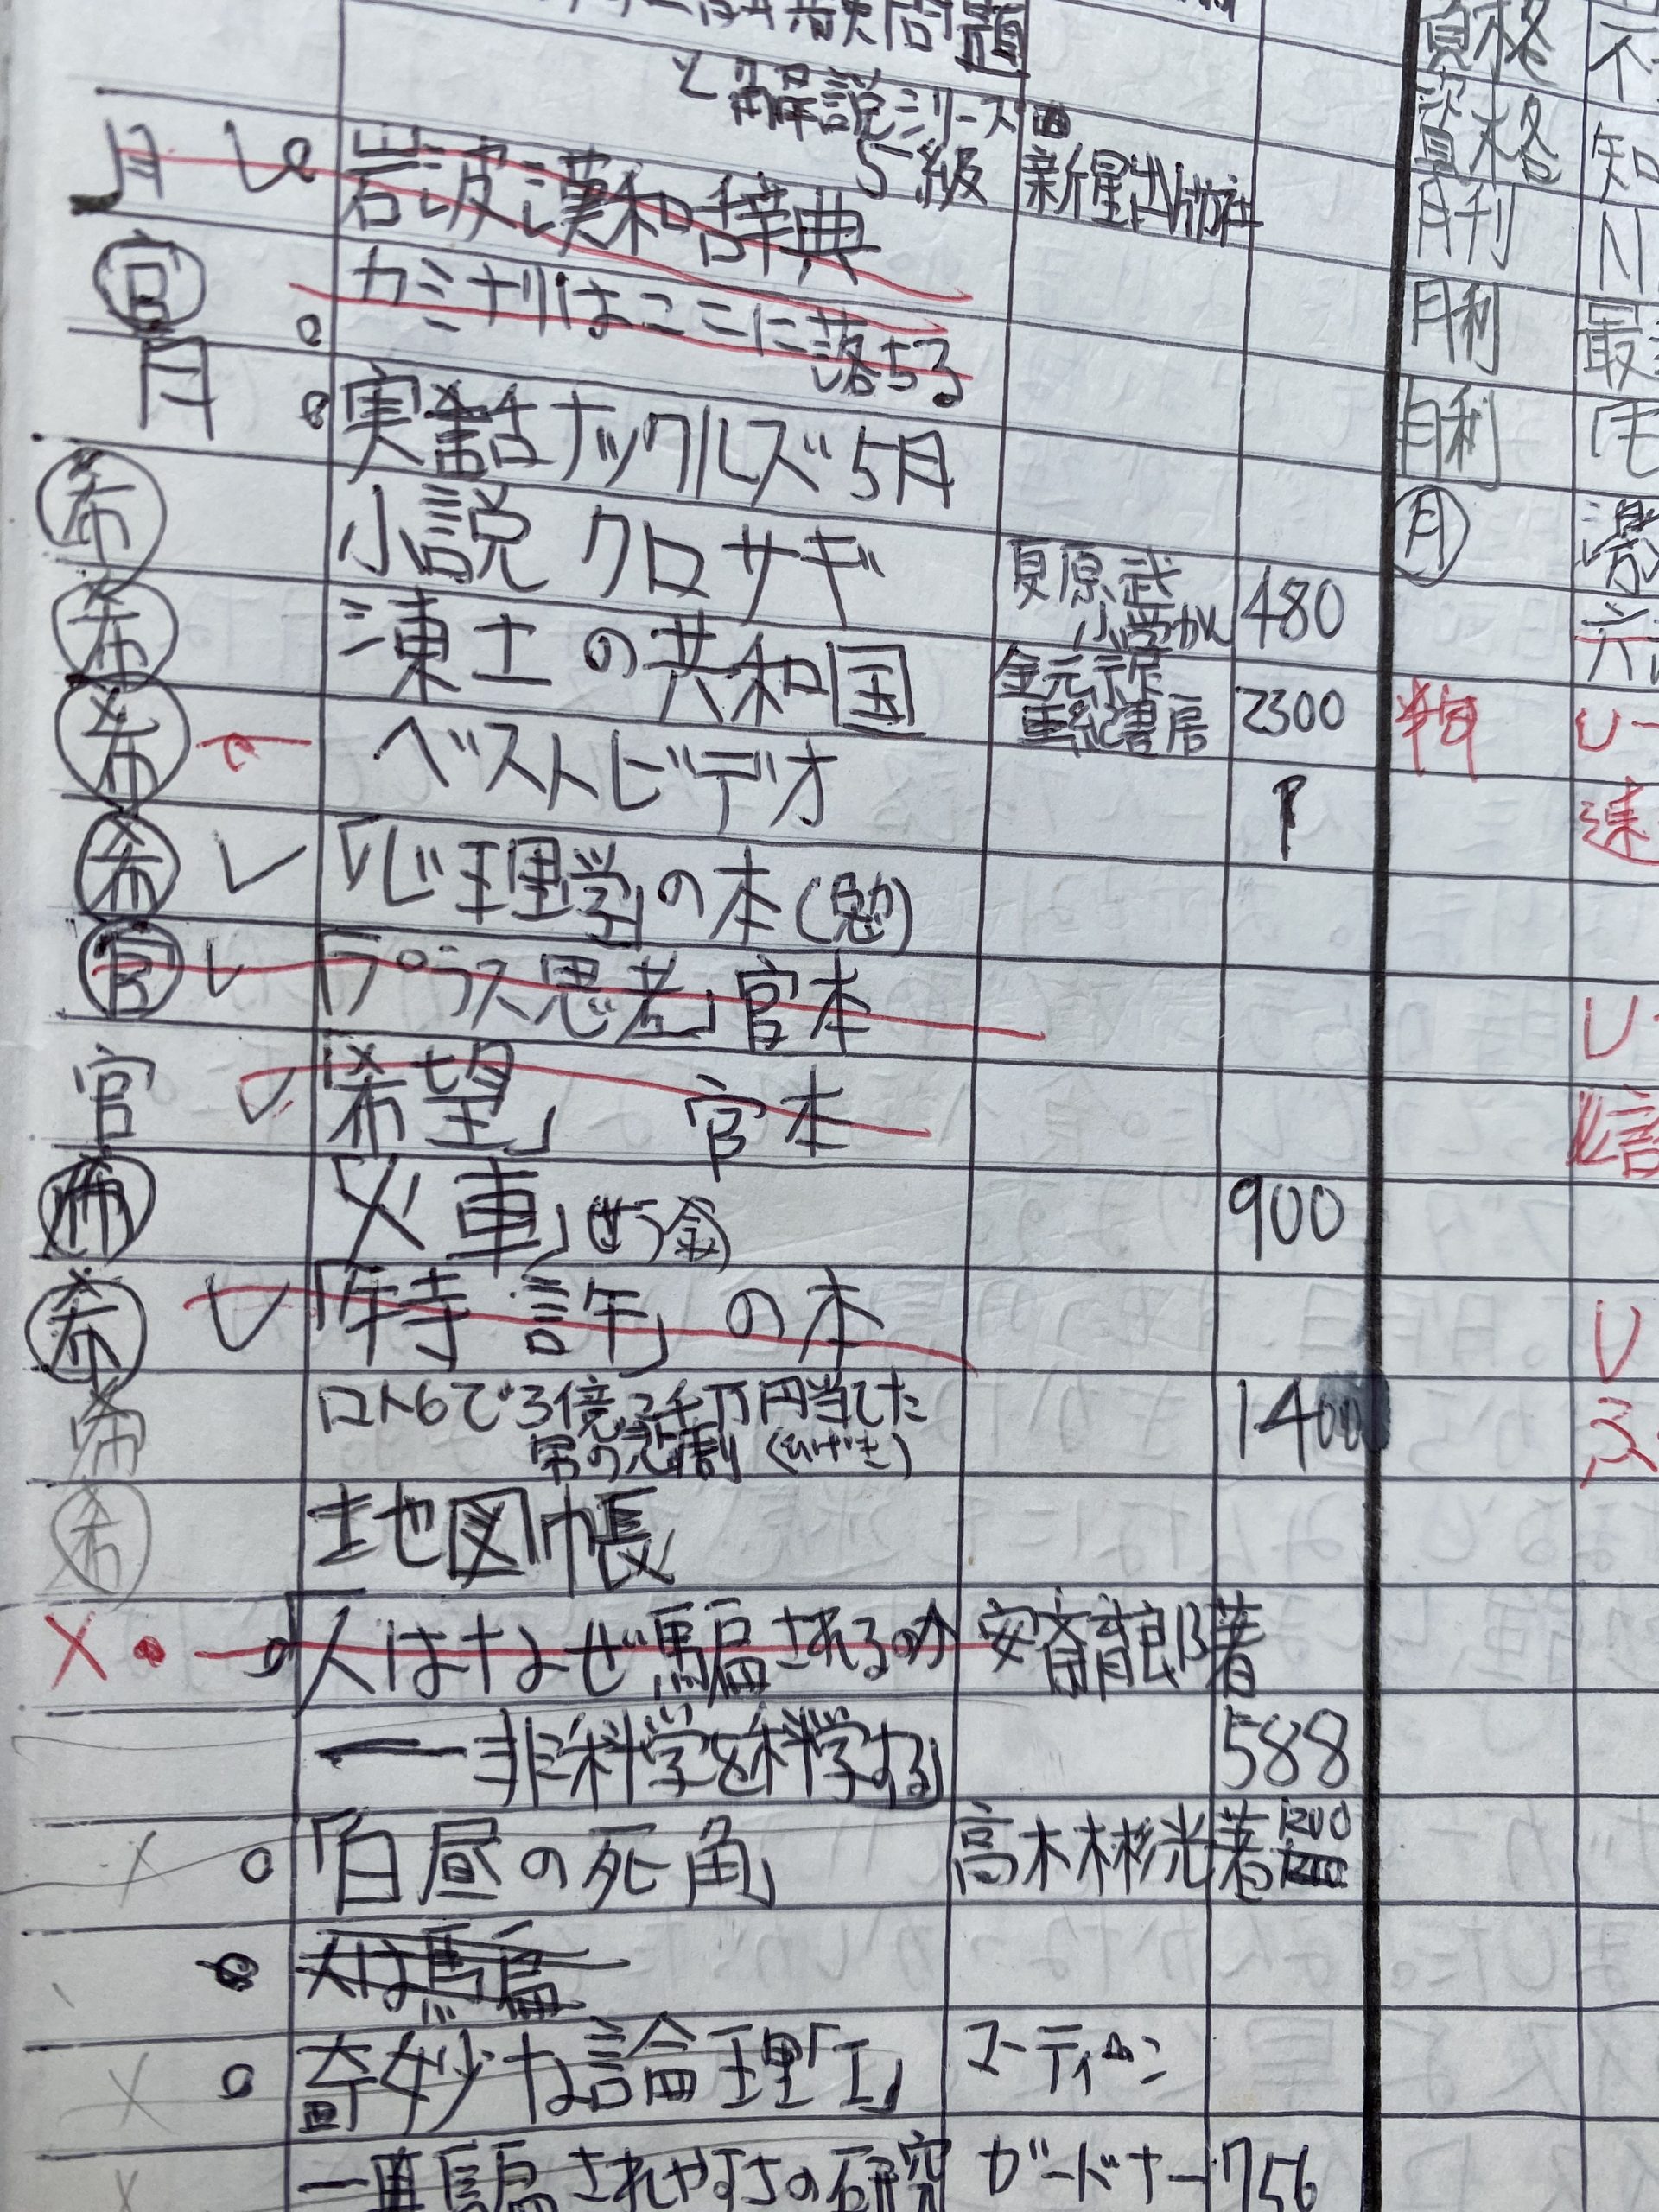 問題
資格
と解説シリーズ
5級 新星出版社
資格
知
月 レ 岩波漢和辞典
月刊
官 カミナリはここに落ちる
月利
最
月 実話ナックルズ 5月
月利
希 小説 クロサギ 夏原武 小学かん 480
月
希 凍土の共和国 金元祚 亜紀書房 2300
希 ベストビデオ
希 レ 「心理学」の本(勉)
官 レ 「プラス思考」官本
官 レ 「希望」 官本
希 「火車」(せう金) 900
希 レ 「特許」の本
希 ロト6で3億2千万円当てた 1400
男の悲劇 (ひげき)
希 地図帳
× 「人はなぜ騙されるのか 安斎育郎著
ー非科学を科学する」 588
× 「白昼の死角」 高木彬光著 1200
人は騙
× 奇妙な論理「I」 マーティン
× ー騙されやすさの研究 ガードナー 756